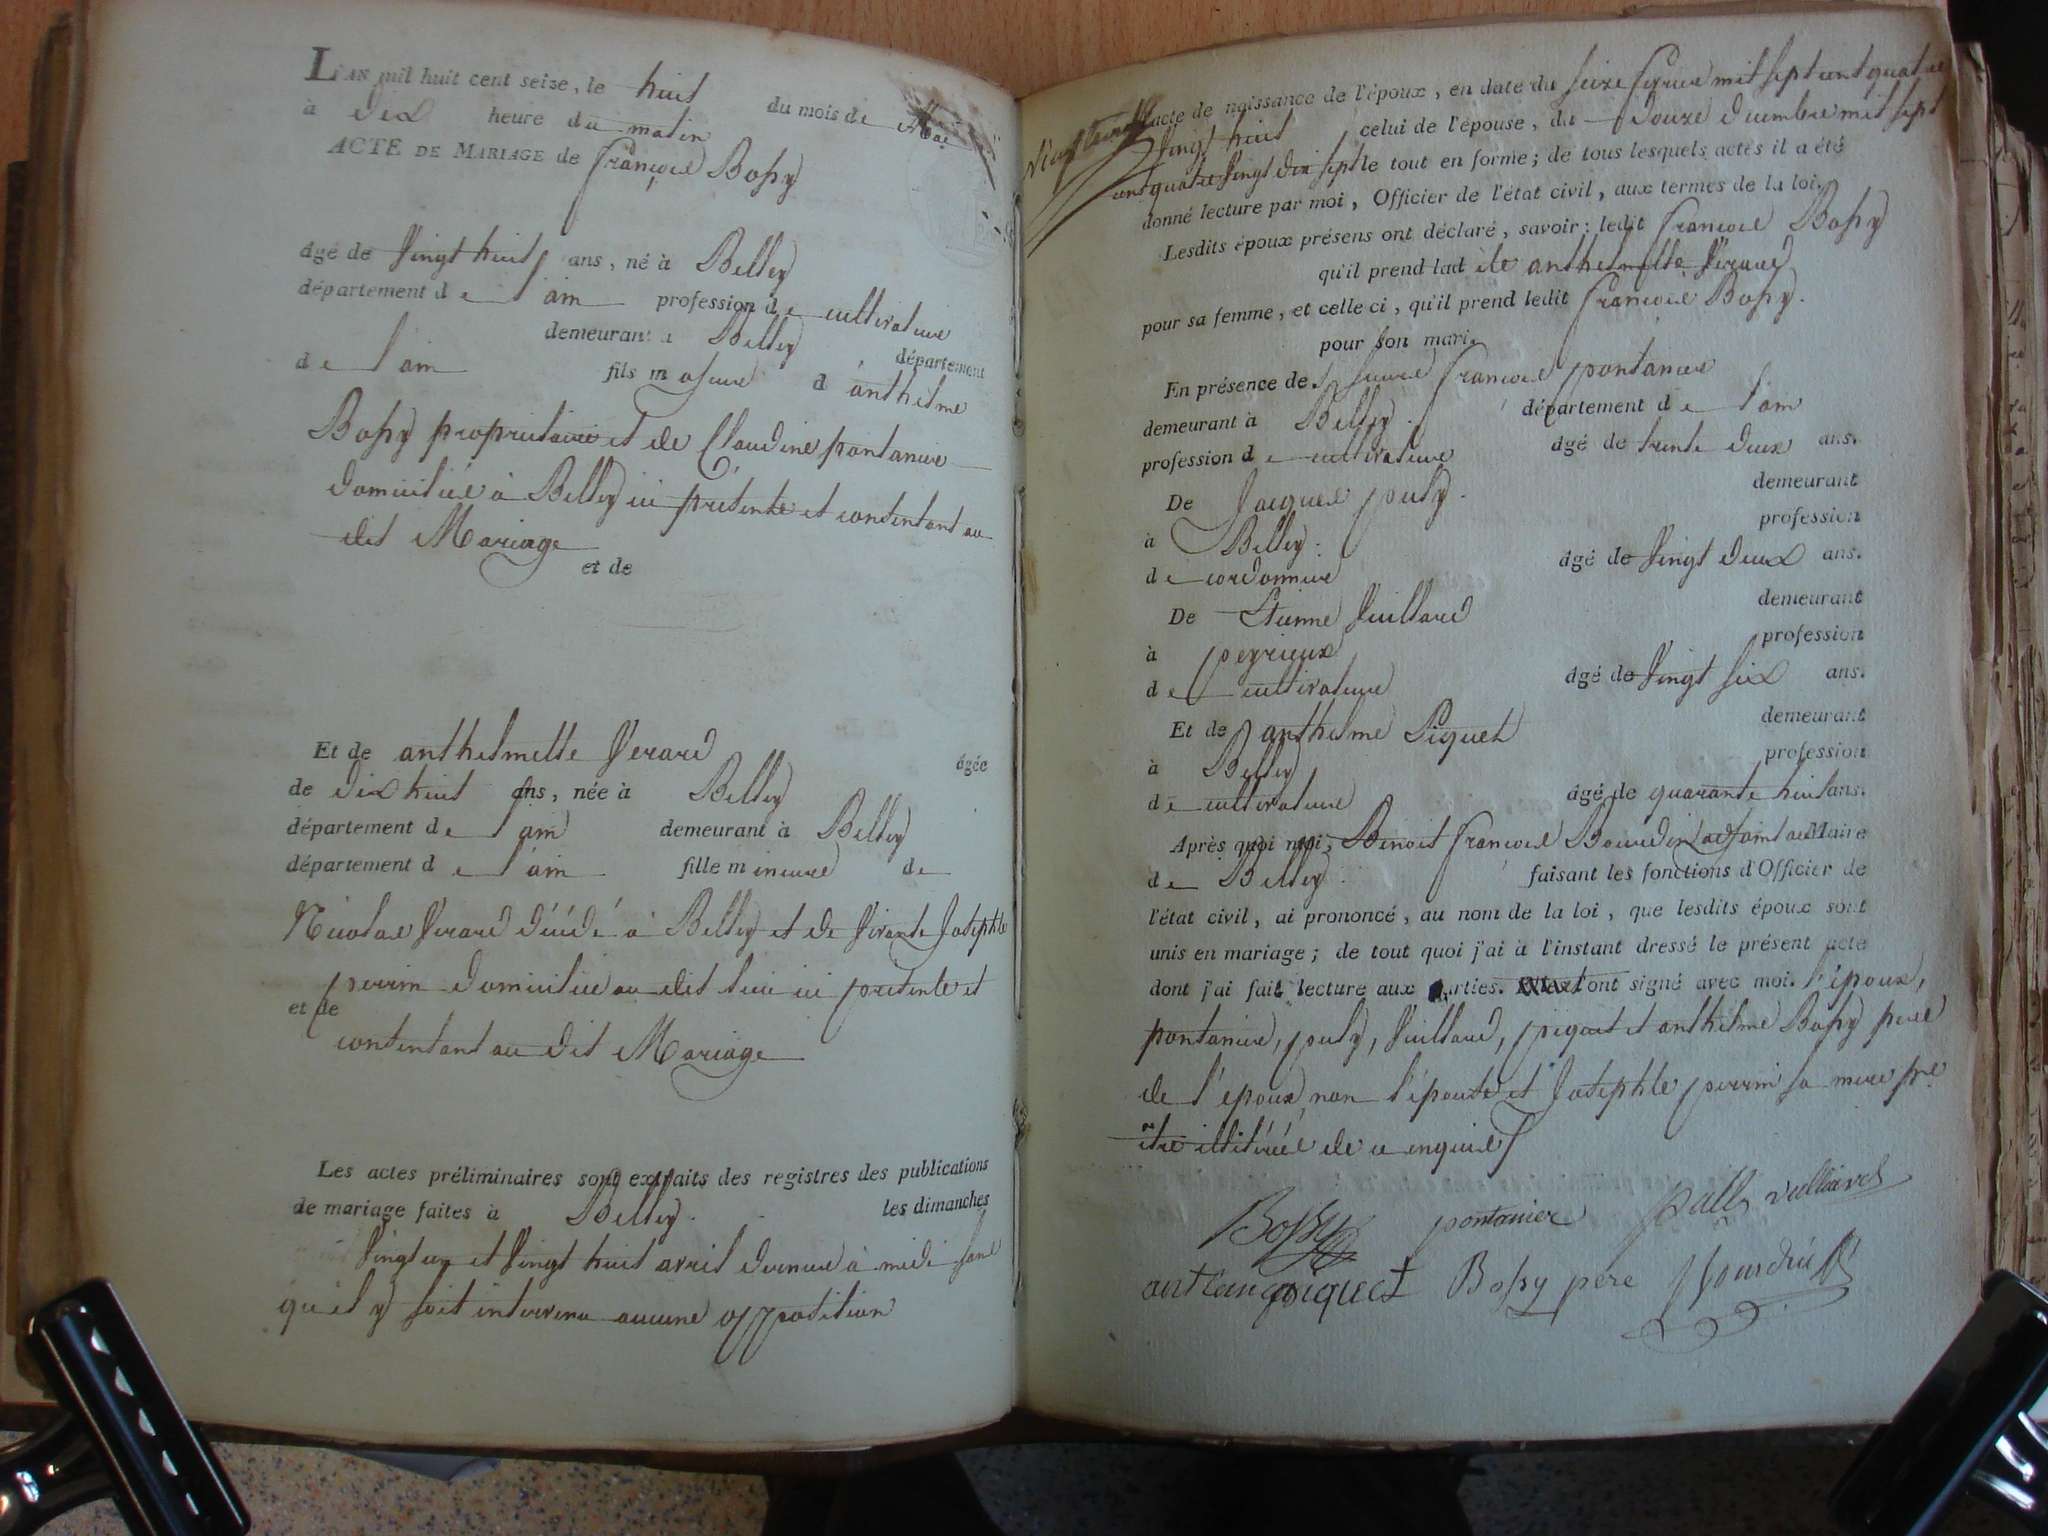 L'AN mil huit cent seize, le huit du mois de Mai
à dix heure du matin
ACTE DE MARIAGE de françois Bossy
âgé de Vingt huit ans, né à Belley
département de l'ain profession de cultivateur
demeurant à Belley département
de l'ain fils majeur d'anthelme
Bossy proprietaire et de Claudine pontanier
domiciliés à Belley ici présents et consentant au
dit Mariage
et de
Et de anthelmette Verard âgée
de dix huit ans, née à Belley
département de l'ain demeurant à Belley
département de l'ain fille mineure de
Nicolas Verard décédé à Belley et de Vivante Josephte
perrin domiciliée au dit lieu ici présente et
et de
consentant au dit Mariage
Les actes préliminaires sont extraits des registres des publications
de mariage faites à Belley les dimanches
Vingt un et Vingt huit avril dernier à midi sans
qu'il y soit intervenu aucune opposition
l'acte de naissance de l'époux, en date du seize fevrier mil sept cent quatre
Vingt huit celui de l'épouse, du douze decembre mil sept
cent quatre Vingt dix sept le tout en forme; de tous lesquels actes il a été
donné lecture par moi, Officier de l'état civil, aux termes de la loi.
Lesdits époux présens ont déclaré, savoir: ledit françois Bossy
qu'il prend ladite anthelmette Verard
pour sa femme, et celle ci, qu'il prend ledit françois Bossy.
pour son mari.
En présence de françois pontanier
demeurant à Belley. département de l'ain
profession de cultivateur âgé de trente deux ans.
De Jacques puly. demeurant
à Belley. profession
de cordonnier âgé de Vingt deux ans.
De Etienne Vuillard demeurant
à peyrieux profession
de cultivateur âgé de Vingt six ans.
Et de anthelme Piquet demeurant
à Belley profession
de cultivateur âgé de quarante huit ans.
Après quoi moi, Benoit françois Bourdin adjoint au Maire
de Belley. faisant les fonctions d'Officier de
l'état civil, ai prononcé, au nom de la loi, que lesdits époux sont
unis en mariage; de tout quoi j'ai à l'instant dressé le présent acte
dont j'ai fait lecture aux parties. ont signé avec moi. l'époux,
pontanier, puly, Vuillard, piquet et anthelme Bossy pere
de l'époux, non l'épouse et Josephte perrin sa mere pr
ne être illitérées de ce enquises
Bossy pontanier vulliard
piquet Bossy père